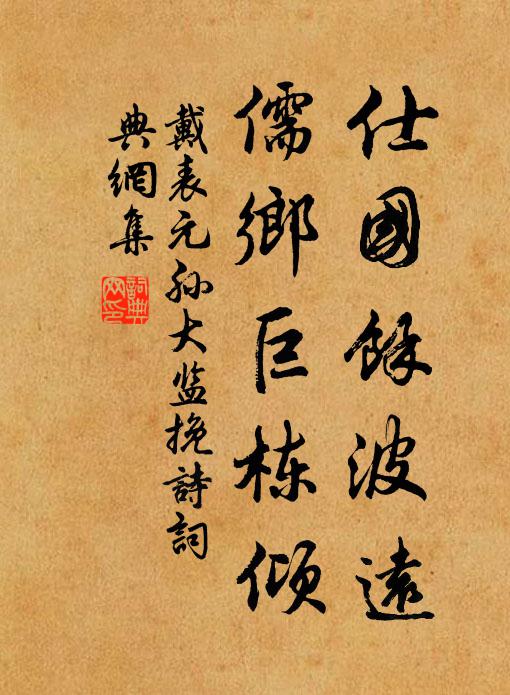 仕國餘波遠
儒鄉巨栋倾
戴表元孙大监挽詩詞
典網集
詞典
网印